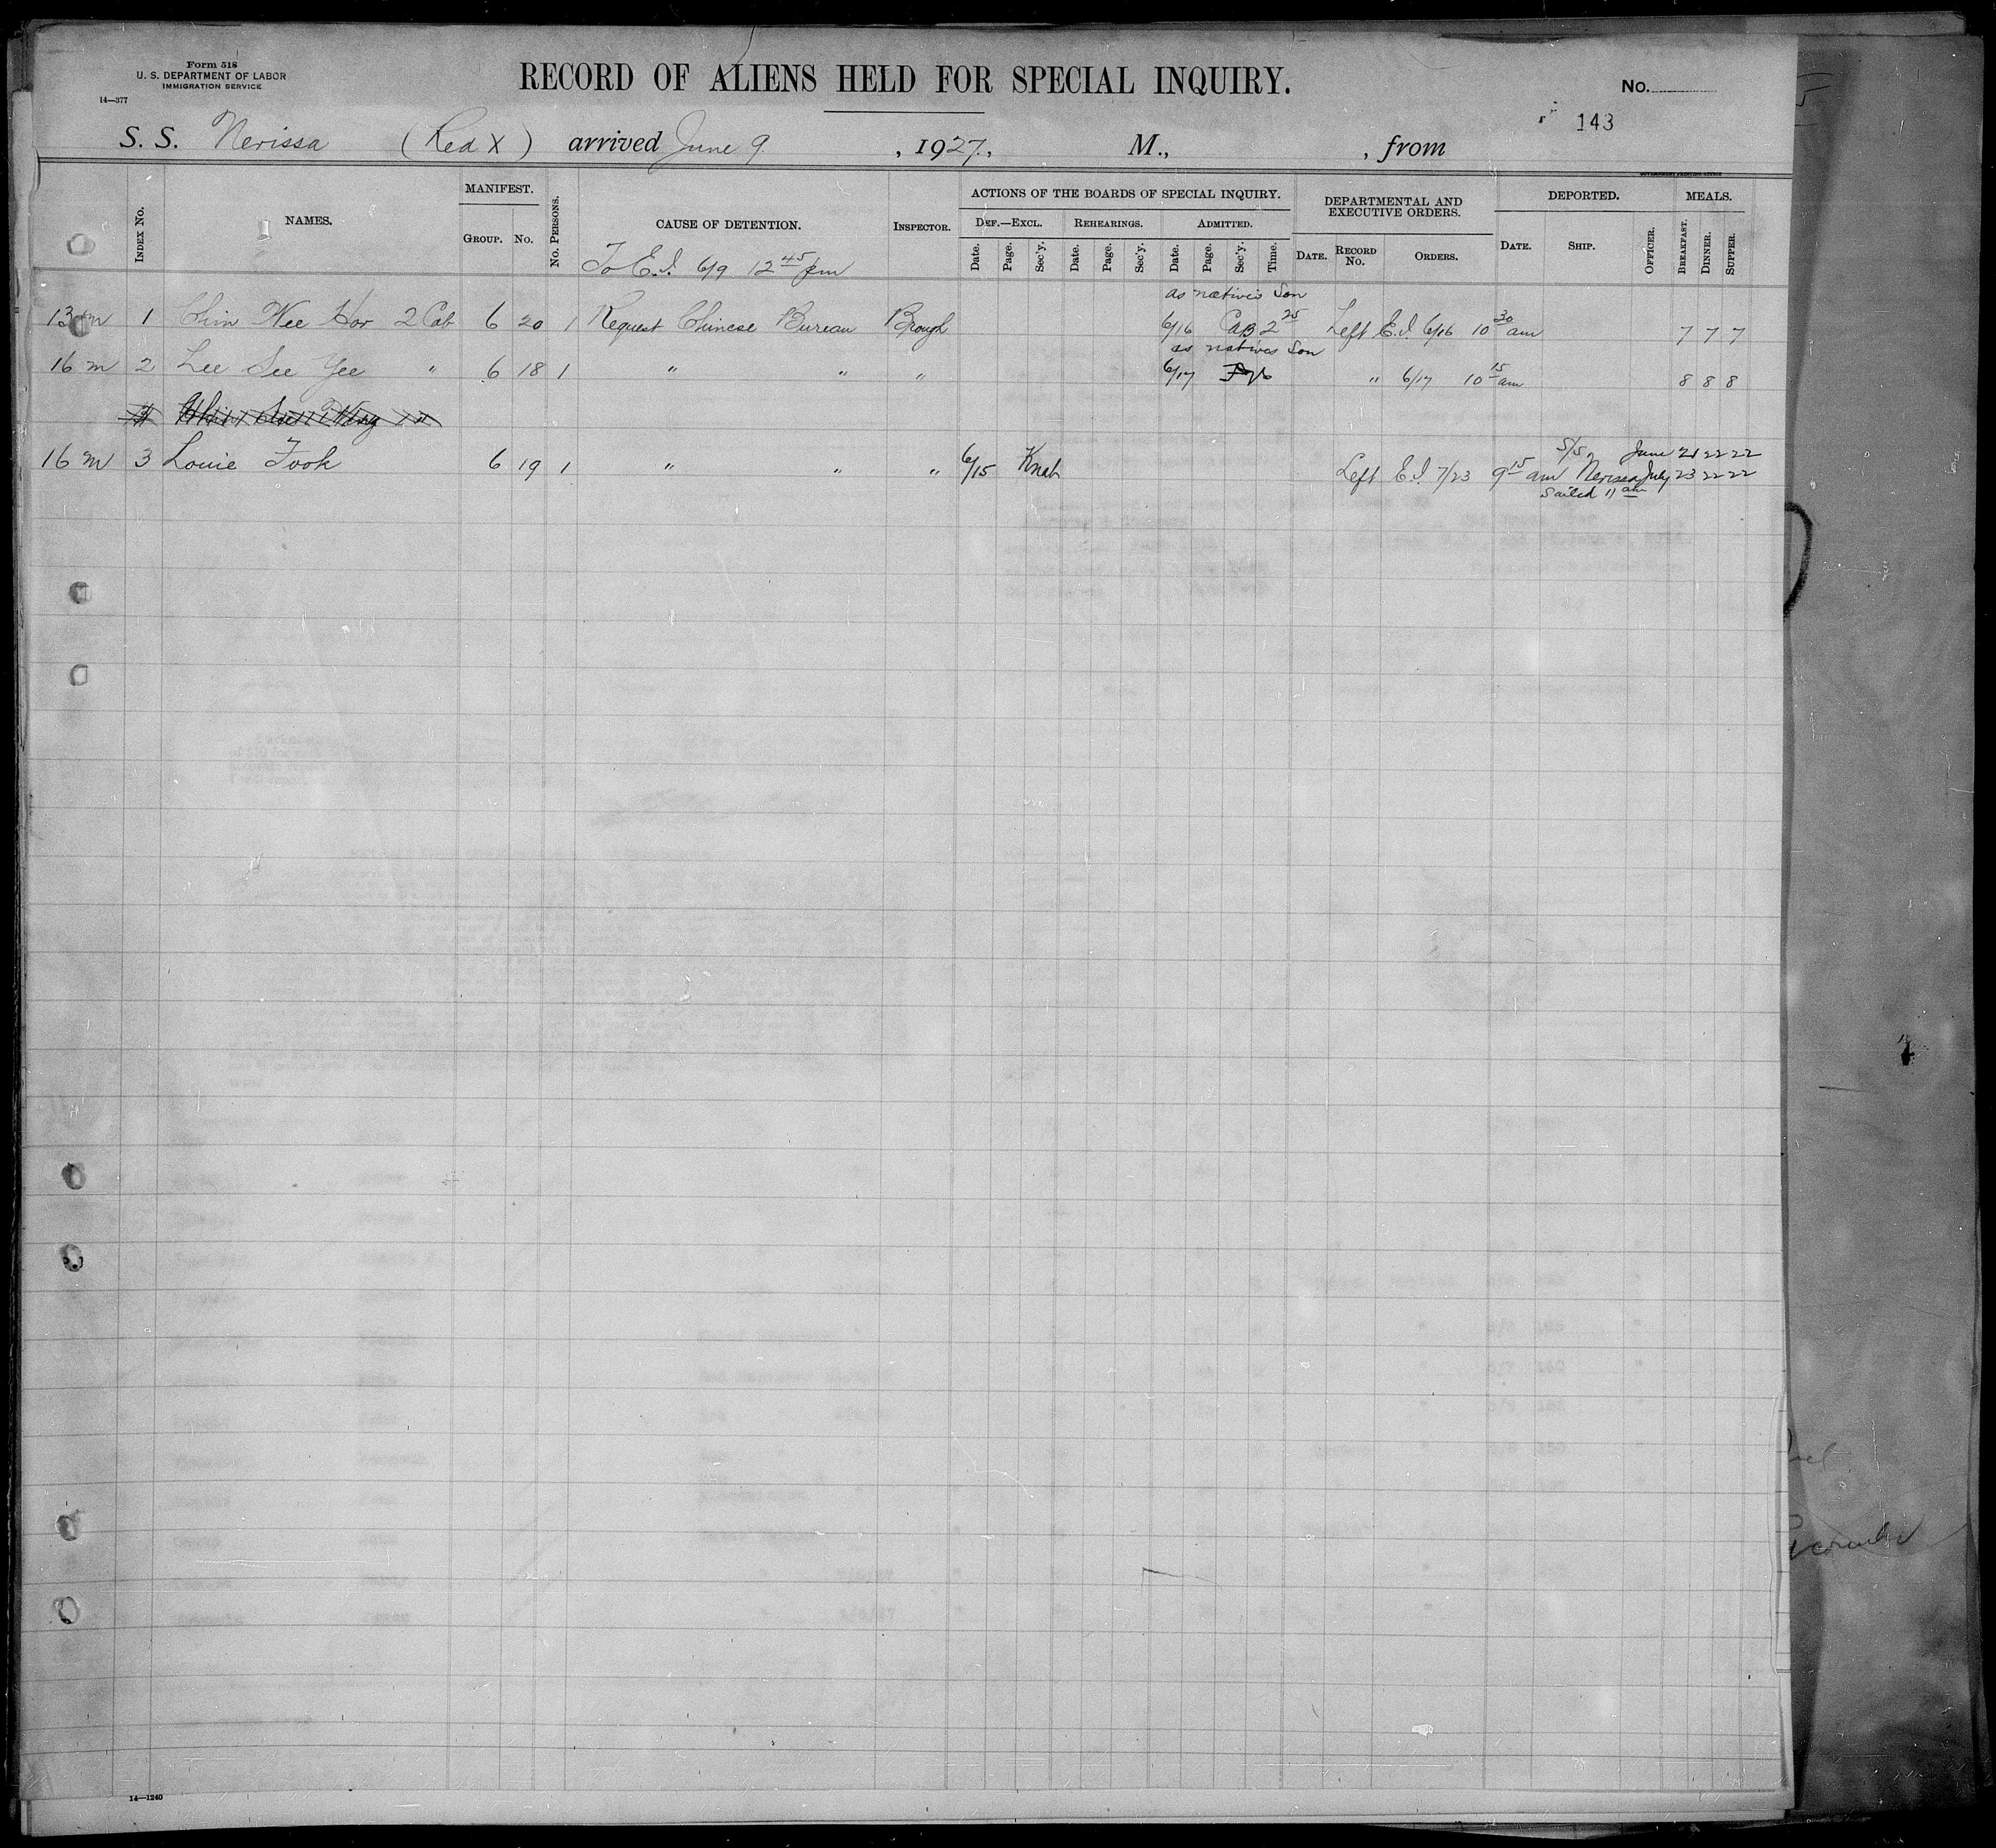 Form 518
U. S. DEPARTMENT OF LABOR
IMMIGRATION SERVICE
14—377
RECORD OF ALIENS HELD FOR SPECIAL INQUIRY.
No.
143
S. S. Nerissa (Red X) arrived June 9, 1927, M., , from
INDEX No. NAMES. MANIFEST. GROUP. No. No. PERSONS. CAUSE OF DETENTION. INSPECTOR. ACTIONS OF THE BOARDS OF SPECIAL INQUIRY. DEF.—EXCL. Date. Page. Sec'y. REHEARINGS. Date. Page. Sec'y. ADMITTED. Date. Page. Sec'y. Time. DEPARTMENTAL AND EXECUTIVE ORDERS. DATE. RECORD No. ORDERS. DEPORTED. DATE. SHIP. OFFICER. MEALS. BREAKFAST. DINNER. SUPPER.
To E.I. 6/9 12 45 pm
as native's son
13 m 1 Chin Wee Hor 2 Cab 6 20 1 Request Chinese Bureau Brough 6/16 CAB 2 25 Left E.I. 6/16 10 30 am 7 7 7
as natives son
16 m 2 Lee See Yee " 6 18 1 " " " 6/17 " 6/17 10 15 am 8 8 8
S/S. June 21 22 22
16 m 3 Louie Fook 6 19 1 " " " 6/15 Knab Left E.I. 7/23 9 15 am Nerissa July 23 22 22
Sailed 11 am
14—1240